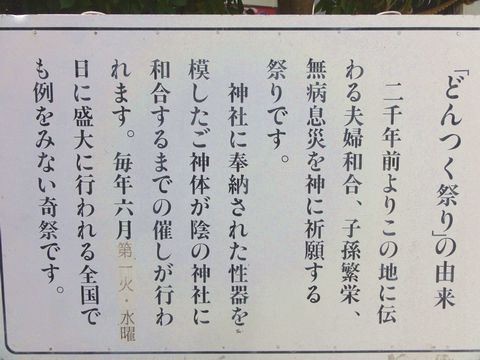 「どんつく祭り」の由来
二千年前よりこの地に伝
わる夫婦和合、子孫繁栄、
無病息災を神に祈願する
祭りです。
神社に奉納された性器を
模したご神体が陰の神社に
和合するまでの催しが行わ
れます。毎年六月第一火・水曜
日に盛大に行われる全国で
も例をみない奇祭です。